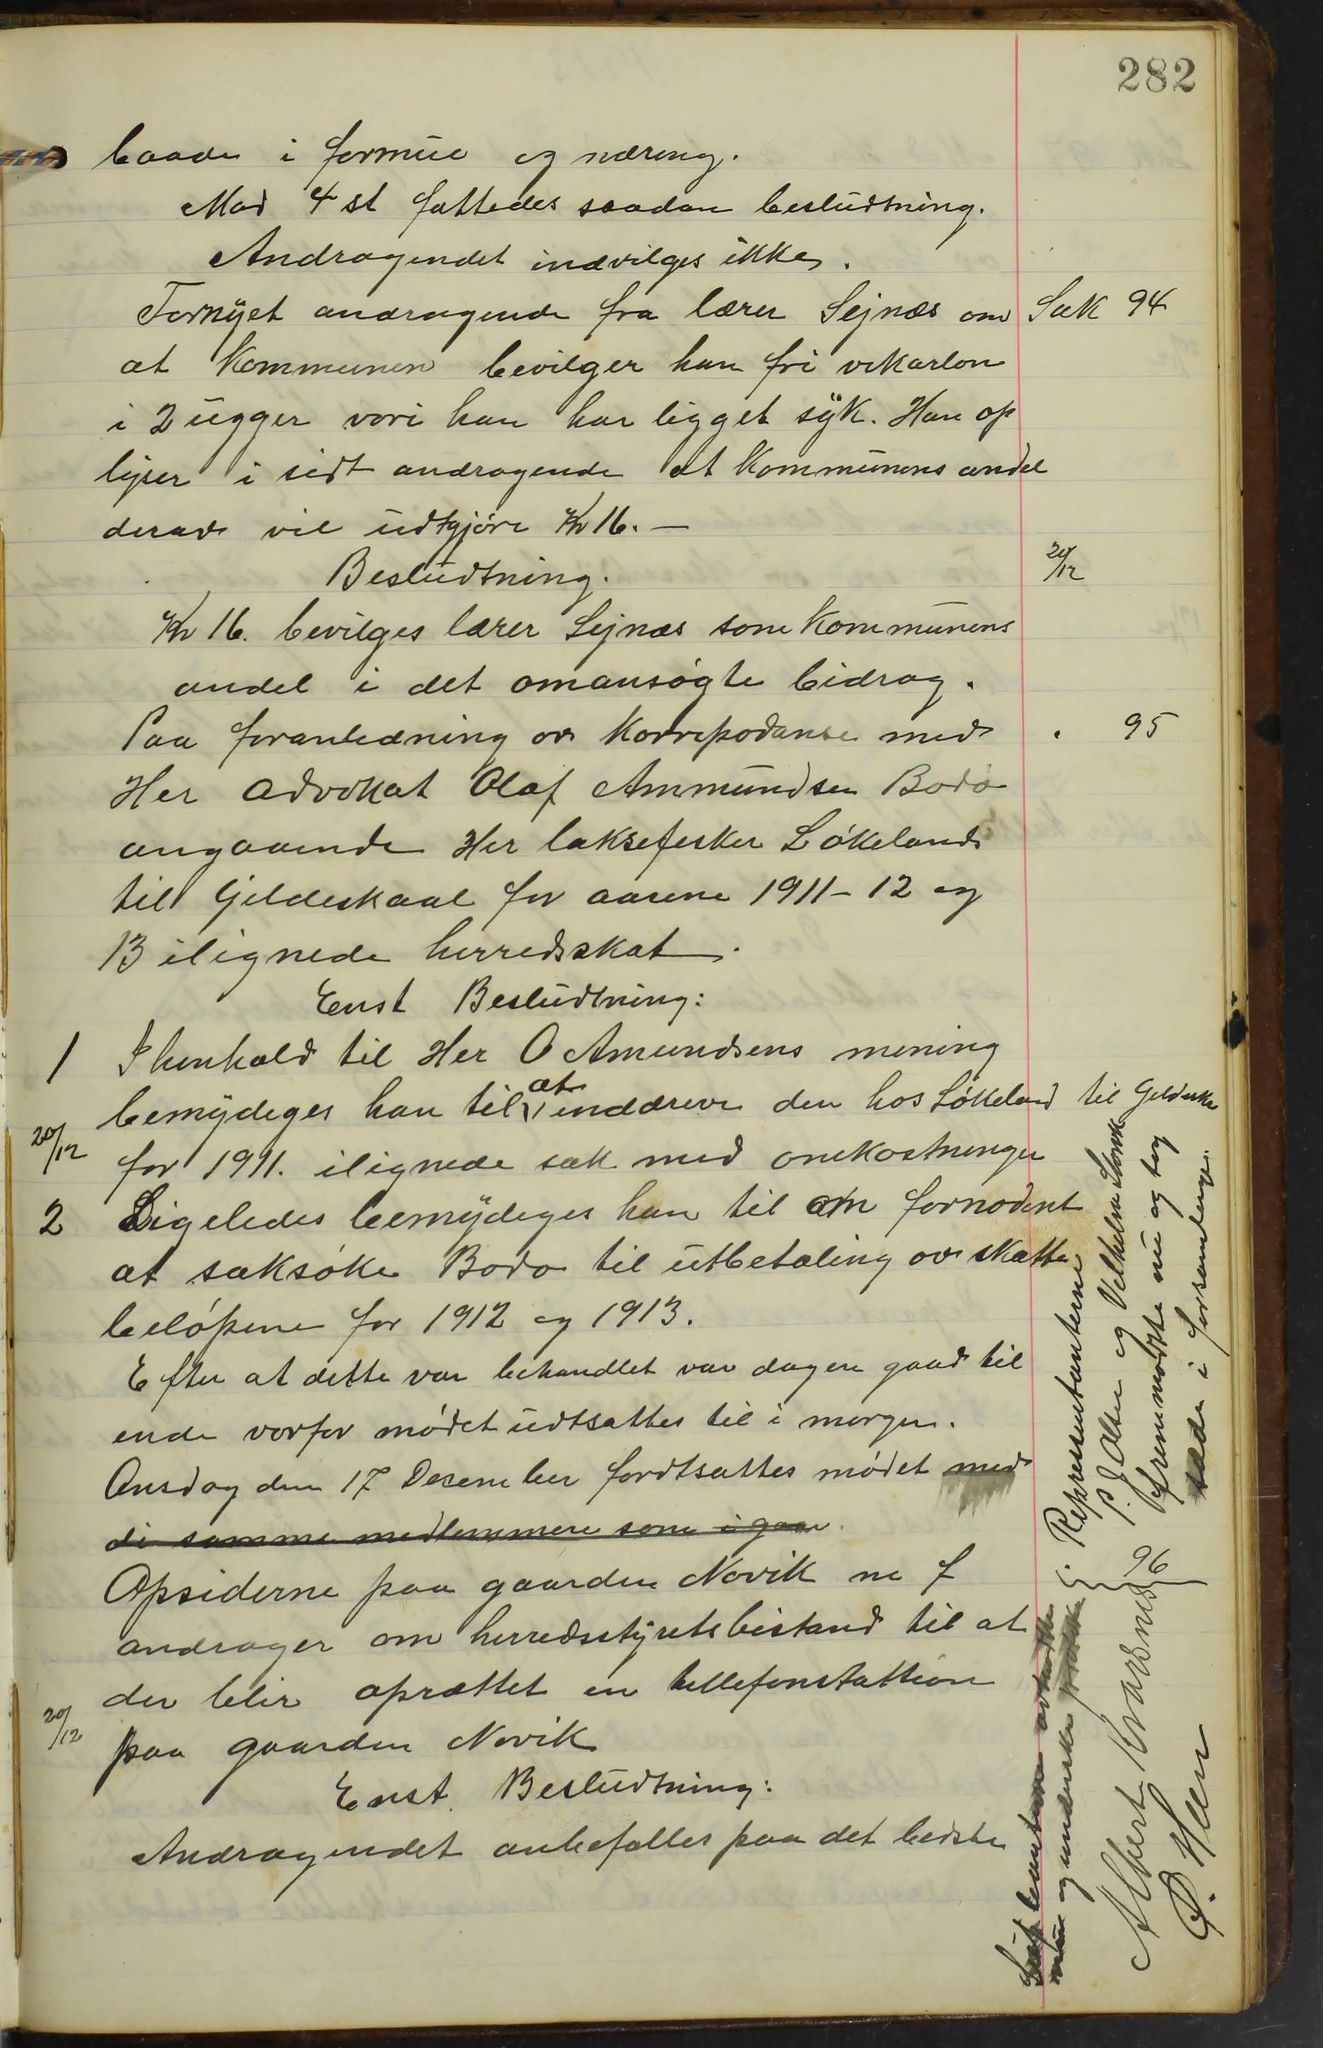 282
baade i formue og næring.
Mod 4 st fattedes saadan besludtning.
Andragendet indvilges ikke.
Fornyet andragende fra lærer Sejnæs om Sak 94
at Kommunen bevilger han fri vikarløn
i 2 ugger vori han har ligget syk. Han op
lyser i sidt andragende at Kommunens andel
derav vil udtgjøre Kr 16. —
Besludtning. 20/12
Kr 16. bevilges lærer Sejnæs som Kommunens
andel i det omansøgte bidrag.
Paa foranledning av Korrepodanse med " 95
Her Advokat Olaf Ammundsen Bodø
angaaende Her laksefisker Løkelands
til Gildeskaal for aarene 1911-12 og
13 ilignede herredsskat.
Enst Besludtning:
1 I henhold til Her O Amundsens mening
bemydiges han til at inddrive den hos Løkeland til Gildesk
20/12 for 1911. ilignede sak med omkostninger
2 Ligeledes bemydiges han til om fornødent
at saksøke Bodø til utbetaling av skatte
beløpene for 1912 og 1913.
Efter at dette var behandlet var dagen gaad til
ende vorfor mødet udtsattes til i morgen.
Onsdag den 17 Desember fordtsattes mødet med
di samme medlemmere som igaar.
Opsiderne paa gaarden Novik 96
andrager om herredsstyrets bistand til at
der blir oprættet en tellefonstattion
20/12 paa gaarden Novik
Enst. Besludtning:
Andragendet anbefalles paa det bedste
Representanterne
P. J Olsen og Vilhelm Storvik
fremmødte nu og tog
sæde i forsamlingen.
Albert Kvarsnes
P. Heen